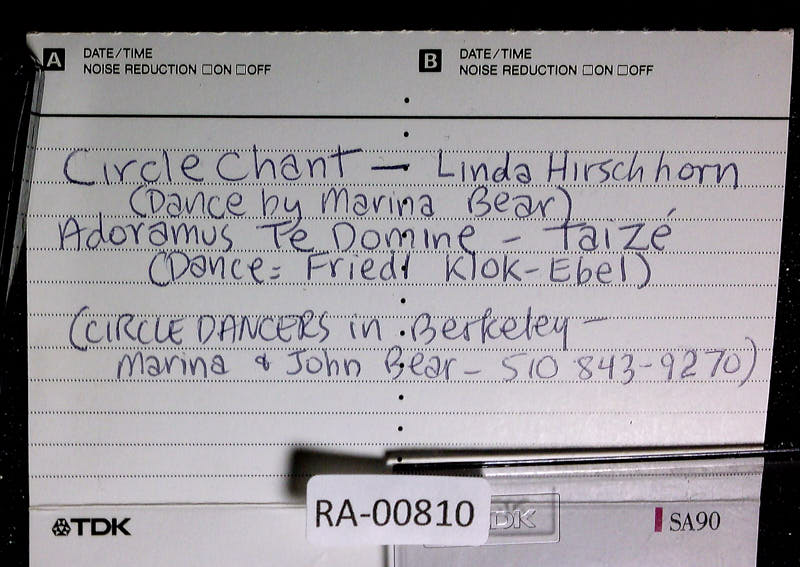 A DATE/TIME
NOISE REDUCTION □ON □OFF
B DATE/TIME
NOISE REDUCTION □ON □OFF
Circle Chant — Linda Hirschhorn
(Dance by Marina Bear)
Adoramus Te Domine - Taizé
(Dance: Friedl Klok-Ebel)
(CIRCLE DANCERS in Berkeley -
Marina & John Bear - 510 843-9270)
TDK
RA-00810
TDK
SA90